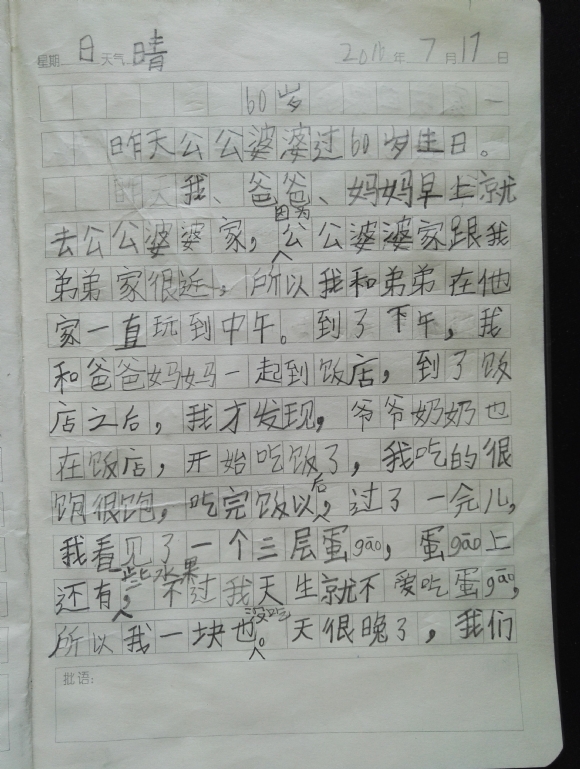 星期 日 天气 晴 2016 年 7 月 17 日
60岁
昨天公公婆婆过60岁生日。
昨天我、爸爸、妈妈早上就
去公公婆婆家，因为公公婆婆家跟我
弟弟家很近，所以我和弟弟在他
家一直玩到中午。到了下午，我
和爸爸妈妈一起到饭店，到了饭
店之后，我才发现，爷爷奶奶也
在饭店，开始吃饭了，我吃的很
饱很饱，吃完饭以后，过了一会儿，
我看见了一个三层蛋gāo，蛋gāo上
还有一些水果，不过我天生就不爱吃蛋gāo，
所以我一块也没吃。天很晚了，我们
批语：